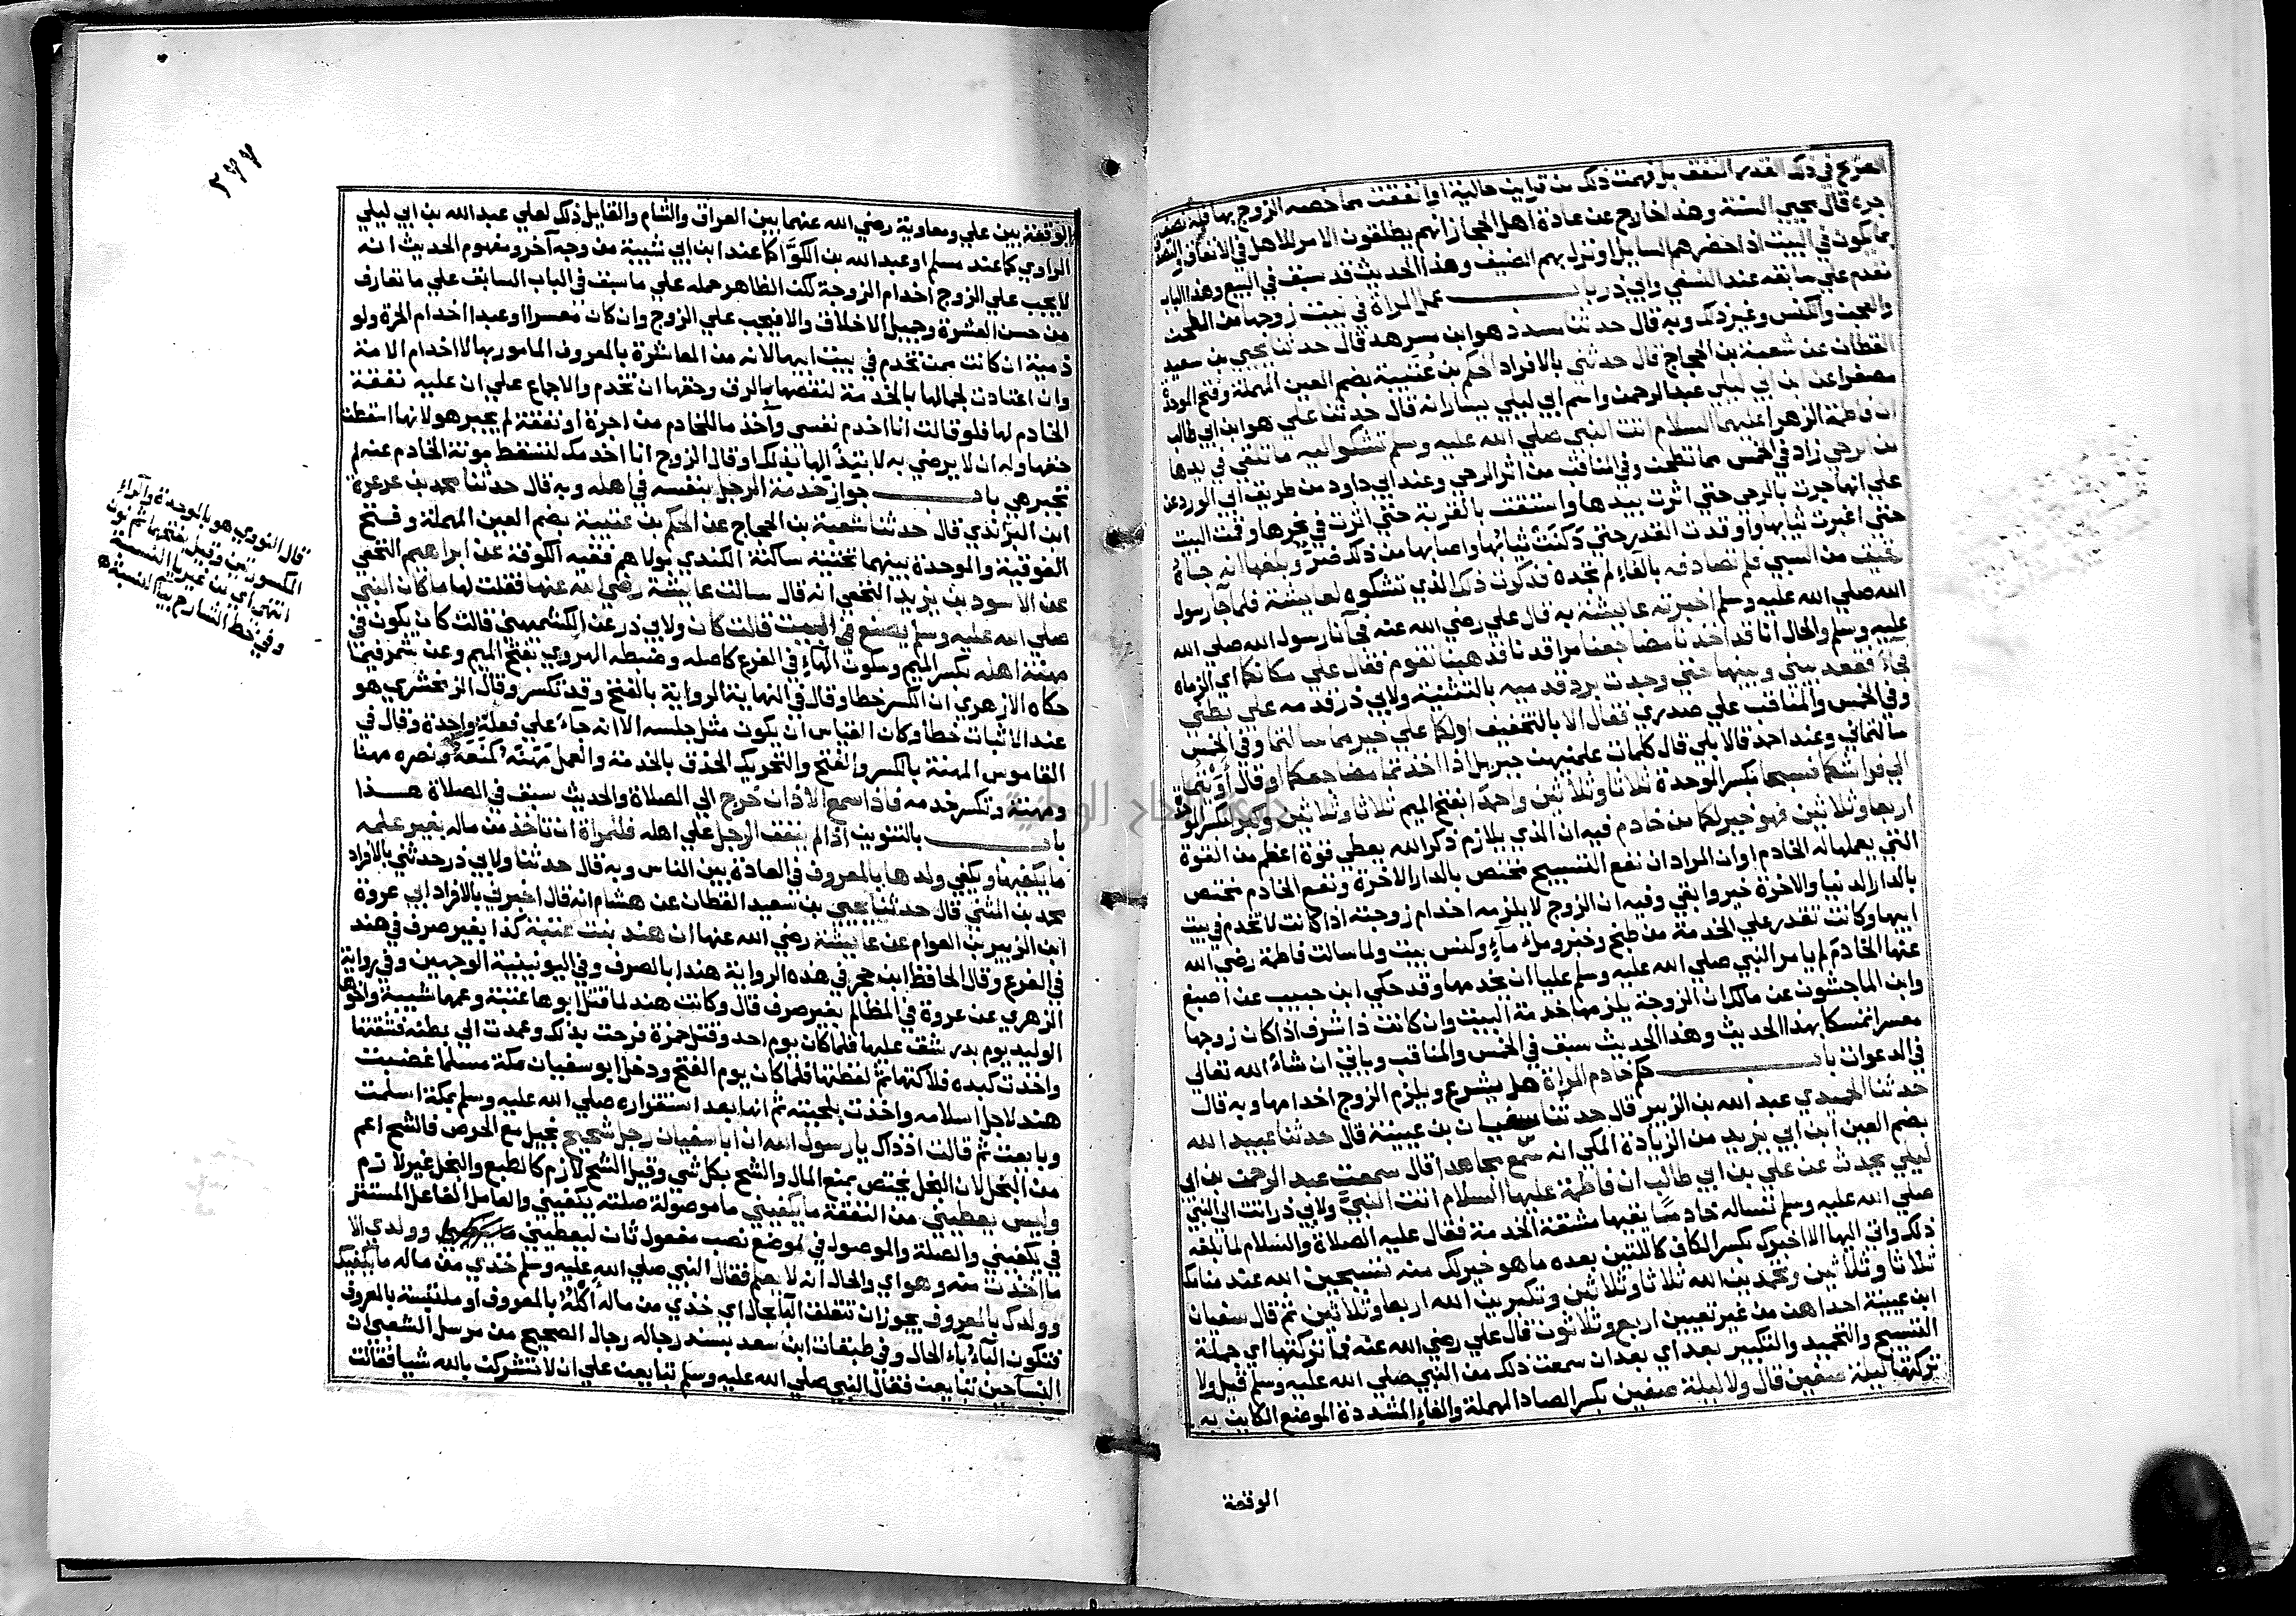 الصريح في ذلك القدر من النفقة بل فهمت ذلك من قراين حالية او انفقت مما خصه الزوج بها فله نصف
اجره قال محيي السنة وهذا خارج عن عادة اهل الحجاز انهم يطلقون الامر للاهل في الانفاق والتصدق
مما يكون في البيت اذا حضرهم السايل او نزل بهم الضيف وهذا الحديث قد سبق في البيع وهذا الباب
تقدم علي سابقه عند النسفي وابي ذر باب عمل المراة في بيت زوجها من الطحن
والعجن والكنس وغير ذلك وبه قال حدثنا مسدد هو ابن مسرهد قال حدثنا يحيي بن سعيد
القطان عن شعبة بن الحجاج قال حدثني بالافراد الحكم بن عتيبة بضم العين المهملة وفتح الموحدة
مصغرا عن ابن ابي ليلي عبد الرحمن واسم ابي ليلي يسار انه قال حدثنا علي هو ابن ابي طالب
ان فاطمة الزهرا عليهما السلام اتت النبي صلي الله عليه وسلم تشكو اليه ما تلقي في يدها
من الرحي زاد في الخمس مما تطحن وفي المناقب من اثر الرحي وعند ابي داود من طريق ابي الورد عن
علي انها جرت بالرحي حتي اثرت بيدها واستقت بالقربة حتي اثرت في نحرها وقمت البيت
حتي اغبرت ثيابها واوقدت القدر حتي دكنت ثيابها واصابها من ذلك ضر وبلغها انه جاه
رقيق من السبي فلم تصادفه بالفاء لم تجده فذكرت ذلك الذي تشكوه لعايشة فلما جا رسول
الله صلي الله عليه وسلم اخبرته عايشة به قال علي رضي الله عنه فجآنا رسول الله صلي الله
عليه وسلم والحال انا قد اخذنا مضاجعنا مراقدنا فذهبنا نقوم فقال علي مكانكما اي الزماه
فجاء فقعد بيني وبينها حتي وجدت برد قدميه بالتثنية ولابي ذر قدمه علي بطني
وفي الخمس والمناقب علي صدري فقال الا بالتخفيف ادلكما علي خير مما سالتما وفي الخمس
سالتماني وعند احمد قالا بلي قال كلمات علمنيهن جبريل اذا اخذتما مضاجعكما او قال أويتما
الي فراشكما فسبحا بكسر الموحدة ثلاثا وثلاثين واحمدا بفتح الميم ثلاثا وثلاثين وكبرا بكسر الموحدة
اربعا وثلاثين فهو خير لكما من خادم فيه ان الذي يلازم ذكر الله يعطي قوة اعظم من القوة
التي يعملها له الخادم او ان المراد ان نفع التسبيح مختص بالدار الاخرة ونفع الخادم مختص
بالدار الدنيا والاخرة خير وابقي وفيه ان الزوج لا يلزمه اخدام زوجته اذا كانت لا تخدم في بيت
ابيها وكانت تقدر علي الخدمة من طبخ وخبز وملء ماء وكنس بيت ولما سالت فاطمة رضي الله
عنها الخادم لم يامر النبي صلي الله عليه وسلم عليا ان يخدمها وقد حكي ابن حبيب عن اصبغ
وابن الماجشون عن مالك ان الزوجة يلزمها خدمة البيت وان كانت ذا شرف اذا كان زوجها
معسرا تمسكا بهذا الحديث وهذا الحديث سبق في الخمس والمناقب وياتي ان شاء الله تعالي
في الدعوات باب حكم خادم المراة هل يشرع ويلزم الزوج اخدامها وبه قال
حدثنا الحميدي عبد الله بن الزبير قال حدثنا سفيان بن عيينة قال حدثنا عبيد الله
بضم العين ابن ابي يزيد من الزيادة المكي انه سمع مجاهدا قال سمعت عبد الرحمن بن ابي
ليلي يحدث عن علي بن ابي طالب ان فاطمة عليها السلام اتت النبي ولابي ذر اتت الي النبي
صلي الله عليه وسلم تساله خادما يقيها مشقة الخدمة فقال عليه الصلاة والسلام لما بلغه
ذلك واتي اليها الا اخبرك بكسر الكاف كاللتين بعده ما هو خير لك منه تسبحين الله عند منامك
ثلاثا وثلاثين وتحمدين الله ثلاثا وثلاثين وتكبرين الله اربعا وثلاثين ثم قال سفيان
ابن عيينة احداهن من غير تعيين اربع وثلاثون قال علي رضي الله عنه فما تركتها اي جملة
التسبيح والتحميد والتكبير بعد اي بعد ان سمعت ذلك من النبي صلي الله عليه وسلم قيل ولا
تركتها ليلة صفين قال ولا ليلة صفين بكسر الصاد المهملة والفاء المشددة الموضع الكاين به
الوقعة
٢٧٧
الوقعة بين علي ومعاوية رضي الله عنهما بين العراق والشام والقايل ذلك لعلي عبد الله بن ابي ليلي
الراوي كما عند مسلم او عبد الله بن الكوا كما عند ابن ابي شيبة من وجه آخر ومفهوم الحديث انه
لا يجب علي الزوج اخدام الزوجة لكن الظاهر حمله علي ما سبق في الباب السابق علي ما تعارف
من حسن العشرة وجميل الاخلاق والا فيجب علي الزوج وان كان معسرا او عبدا اخدام الحرة ولو
ذمية ان كانت ممن تخدم في بيت ابيها لانه من المعاشرة بالمعروف المامور بها لا اخدام الامة
وان اعتادت لجمالها بالخدمة لنقصها بالرق وحقها ان تخدم والاجماع علي ان عليه نفقة
الخادم لها فلو قالت انا اخدم نفسي وآخذ ما للخادم من اجرة او نفقة لم يجبر هو لانها اسقطت
حقها وله ان لا يرضي به لابتذالها بذلك او قال الزوج انا اخدمك لتسقط مونة الخادم عنه لم
تجبر هي باب جواز خدمة الرجل بنفسه في اهله وبه قال حدثنا محمد بن عرعرة
ابن البرندي قال حدثنا شعبة بن الحجاج عن الحكم بن عتيبة بضم العين المهملة وفتح
الفوقية والموحدة بينهما تحتية ساكنة الكندي مولاهم فقيه الكوفة عن ابراهيم النخعي
عن الاسود بن يزيد النخعي انه قال سالت عايشة رضي الله عنها فقلت لها ما كان النبي
صلي الله عليه وسلم يصنع في البيت قالت كان ولابي ذر عن الكشميهني قالت كان يكون في
مهنة اهله بكسر الميم وسكون الهاء في الفرع كاصله وضبطه الهروي بفتح الميم وعن شمر فيما
حكاه الازهري ان الكسر خطا وقال في النهاية الرواية بالفتح وقد تكسر وقال الزمخشري هو
عند الاثبات خطأ وكان القياس ان يكون مثل جلسه الا انه جاء علي فعلة واحدة وقال في
القاموس المهنة بالكسر والفتح والتحريك الحذق بالخدمة والعمل مهنه كمنعه ونصره مهنا
ومهنة وتكسر خدمه فاذا سمع الاذان خرج الي الصلاة والحديث سبق في الصلاة هذا
باب بالتنوين اذا لم ينفق الرجل علي اهله فللمراة ان تاخذ من ماله بغير علمه
ما يكفيها ويكفي ولدها بالمعروف في العادة بين الناس وبه قال حدثنا ولابي ذر حدثني بالافراد
محمد بن المثني قال حدثنا يحيي بن سعيد القطان عن هشام انه قال اخبرني بالافراد ابي عروة
ابن الزبير بن العوام عن عايشة رضي الله عنها ان هند بنت عتبة كذا بغير صرف في هند
في الفرع وقال الحافظ ابن حجر في هذه الرواية هندا بالصرف وفي اليونينية الوجهين وفي رواية
الزهري عن عروة في المظالم بغير صرف قال وكانت هند لما قتل ابوها عتبة وعمها شيبة واخوها
الوليد يوم بدر شق عليها فلما كان يوم احد وقتل حمزة فرحت بذلك وعمدت الي بطنه فشقتها
واخذت كبده فلاكتها ثم لفظتها فلما كان يوم الفتح ودخل ابو سفيان مكة مسلما غضبت
هند لاجل اسلامه واخذت بلحيته ثم انها بعد استقراره صلي الله عليه وسلم بمكة اسلمت
وبايعت ثم قالت اذ ذاك يا رسول الله ان ابا سفيان رجل شحيح بخيل مع الحرص فالشح اعم
من البخل لان البخل يختص بمنع المال والشح بكل شي وقيل الشح لازم كالطبع والبخل غير لازم
وليس يعطيني من النفقة ما يكفيني ما موصولة صلته يكفيني والعامل الفاعل المستقر
في يكفيني والصلة والموصول في موضع نصب مفعول ثان ليعطيني وولدي الا
ما اخذت منه وهو اي والحال انه لا يعلم فقال النبي صلي الله عليه وسلم خذي من ماله ما يكفيك
وولدك بالمعروف يجوز ان تتعلق الباء بحال اي خذي من ماله آكلة بالمعروف او ملتبسة بالمعروف
فتكون الباء باء الحال وفي طبقات ابن سعد بسند رجاله رجال الصحيح من مرسل الشعبي ان
النسا حين بايعت فقال النبي صلي الله عليه وسلم تبايعن علي ان لا تشركن بالله شيا فقالت
قال النووي هو بالموحدة والراء
المكسورتين وقيل بفتحهما ثم نون
انتهي اي من غير يا النسبة
وفي خط الشارح بيا النسبة
جامعة النجاح الوطنية